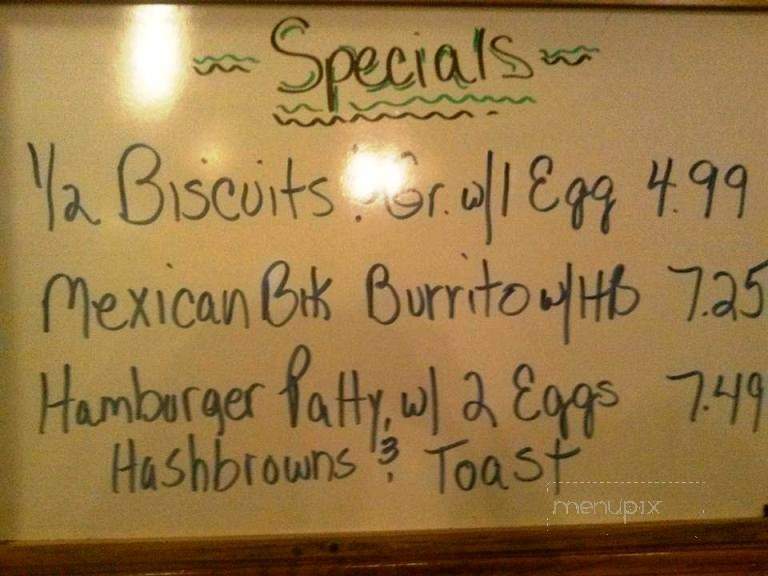 ~ Specials ~
1/2 Biscuits & Gr. w/1 Egg 4.99
Mexican Brk Burrito w/HB 7.25
Hamburger Patty, w/ 2 Eggs 7.49
Hashbrowns & Toast
menupix